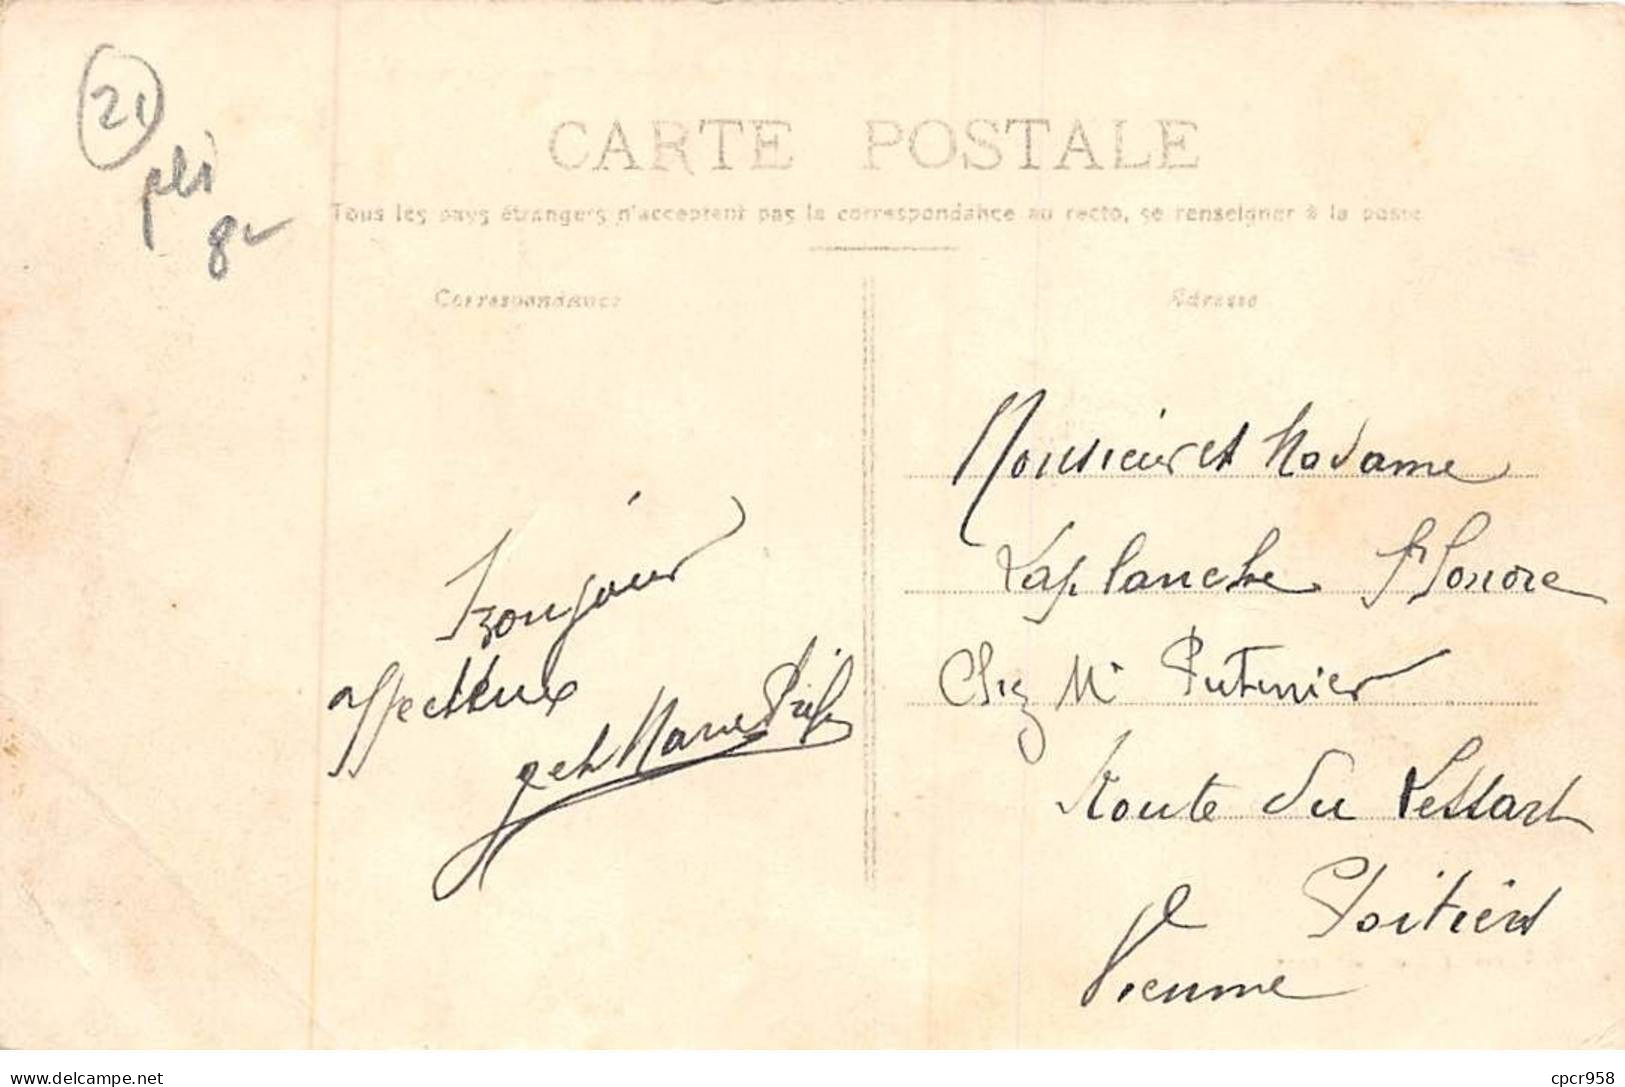 21
pli
8
CARTE POSTALE
Tous les pays étrangers n'acceptent pas la correspondance au recto, se renseigner à la poste
Correspondance
Adresse
Bonjour
affectueux
Marie
Monsieur et Madame
Laplanche St Honoré
Chez Mr Putinier
Route du Lessart
Poitiers
Vienne
delcampe.net
cpcr958